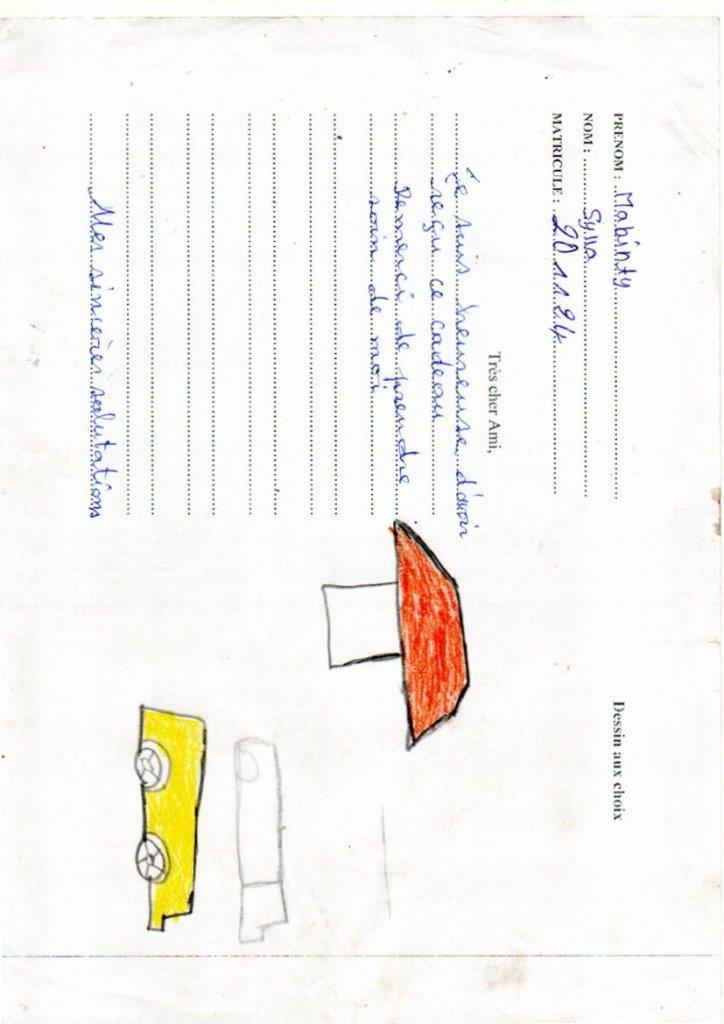 PRENOM : Mabinty
NOM : Sylla
MATRICULE : 201124
Dessin aux choix
Très cher Ami,
Je suis heureuse d'avoir
reçu ce cadeau
Remerci de prendre
soin de moi
Mes sincères salutations